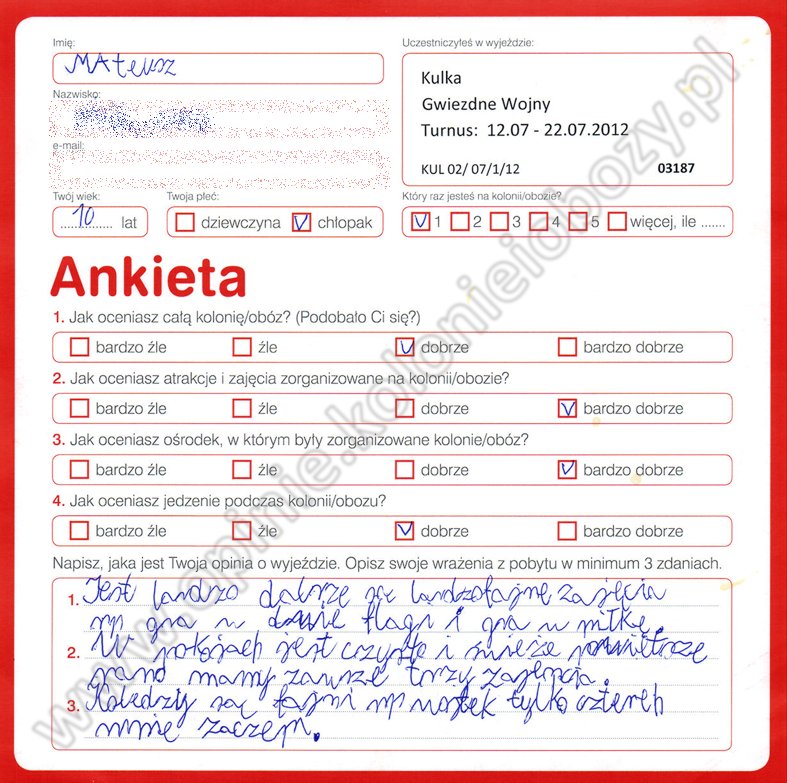 Imię:
MAteusz
Uczestniczyłeś w wyjeździe:
Kulka
Gwiezdne Wojny
Turnus: 12.07 - 22.07.2012
KUL 02/ 07/1/12 03187
Nazwisko:
e-mail:
Twój wiek:
10 lat
Twoja płeć:
dziewczyna V chłopak
Który raz jesteś na kolonii/obozie?
V 1 2 3 4 5 więcej, ile .......
Ankieta
1. Jak oceniasz całą kolonię/obóz? (Podobało Ci się?)
bardzo źle źle V dobrze bardzo dobrze
2. Jak oceniasz atrakcje i zajęcia zorganizowane na kolonii/obozie?
bardzo źle źle dobrze V bardzo dobrze
3. Jak oceniasz ośrodek, w którym były zorganizowane kolonie/obóz?
bardzo źle źle dobrze V bardzo dobrze
4. Jak oceniasz jedzenie podczas kolonii/obozu?
bardzo źle źle V dobrze bardzo dobrze
Napisz, jaka jest Twoja opinia o wyjeździe. Opisz swoje wrażenia z pobytu w minimum 3 zdaniach.
1. Jest bardzo dobrze są bardzo fajne zajęcia
np gra w dwie flagi i gra w piłkę.
2. W pokojach jest czysto i świeże powietrze
mamy zawsze trzy zajęcia.
3. Koledzy są fajni np tylko czterech
mnie
www.opinie.kolonieiobozy.pl